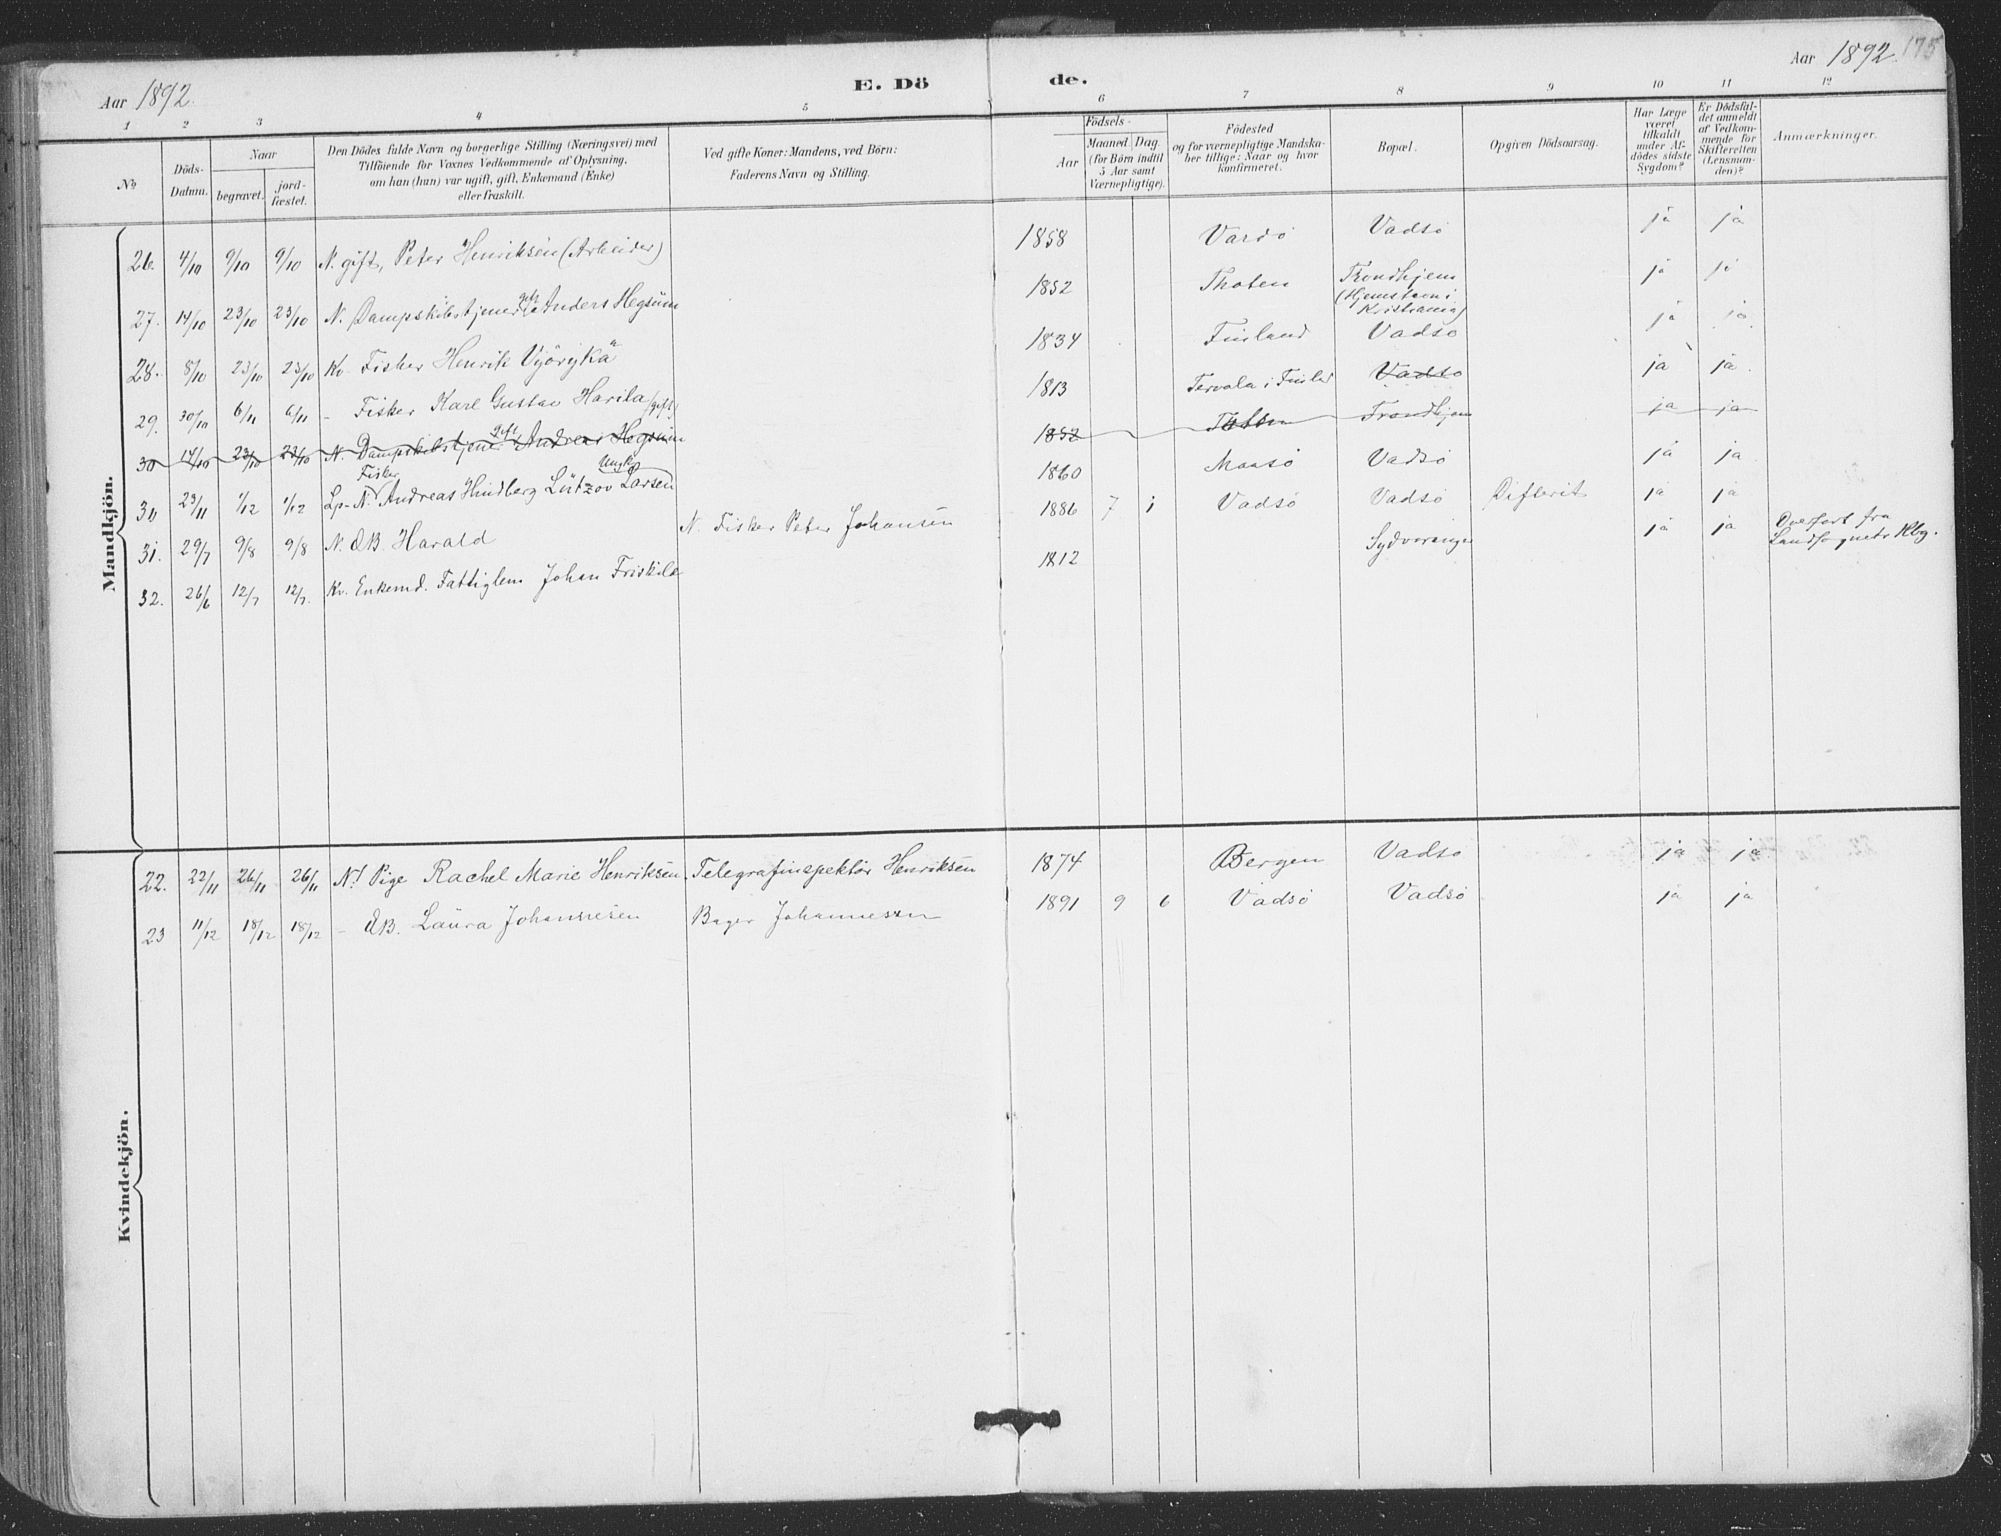 Aar 1892.
E. Dö de.
Aar 1892. 175
1 2 3 4 5 6 7 8 9 10 11 12
No
Döds-
Datum.
Naar
begravet.
jord-
fæstet.
Den Dödes fulde Navn og borgerlige Stilling (Næringsvei) med
Tilföiende for Voxnes Vedkommende af Oplysning,
om han (hun) var ugift, gift, Enkemand (Enke)
eller fraskilt.
Ved gifte Koner: Mandens, ved Börn:
Faderens Navn og Stilling.
Födsels-
Aar
Maaned. Dag.
(for Börn indtil
5 Aar samt
Værnepligtige).
Födested
og for værnepligtige Mandska-
ber tillige: Naar og hvor
konfirmeret.
Bopæl.
Opgiven Dödsaarsag.
Har Læge
været
tilkaldt
under Af-
dödes sidste
Sygdom?
Er Dödsfal-
det anmeldt
af Vedkom-
mende for
Skifteretten
(Lensman-
den)?
Anmærkninger.
Mandkjön.
26. 4/10 9/10 9/10 N. gift, Peter Henriksen (Arbeider) 1858 Vardö Vadsö ja ja
27. 14/10 23/10 23/10 N. Dampskibstjener gift Anders Hegsum 1852 Thoten Trondhjem (Hjemstavn i Kristiania) ja ja
28. 8/10 23/10 23/10 Kv. Fisker Henrik 1834 Finland Vadsö ja ja
29. 30/10 6/11 6/11 - Fisker Karl Gustav Harila (gift) 1813 Tervola i Finld Vadsö ja ja.
30 14/10 23/10 23/10 N. Dampskibstjener gift Andreas Hegsum 1852 Thoten Trondhjem ja ja
30 23/11 1/12 1/12 Lp-N. Fisker Andreas Hindberg Lützov Larsen Ungk. 1860 Maasö Vadsö ja ja
31. 29/7 9/8 9/8 N. ÆB. Harald N. Fisker Peter Johansen 1886 7 1 Vadsö Vadsö Difterit ja ja
32. 26/6 12/7 12/7. Kv. Enkemd. Fattiglem Johan Friskilæ 1812 Sydvaranger ja ja Overfört fra
Landsognets Kbg.
Kvindekjön.
22. 22/11 26/11 26/11 N. Pige Rachel Marie Henriksen. Telegrafinspektör Henriksen 1874 Bergen Vadsö ja ja
23 11/12 18/12 18/12 - ÆB. Laura Johannesen Bager Johannesen 1891 9 6 Vadsö Vadsö ja ja